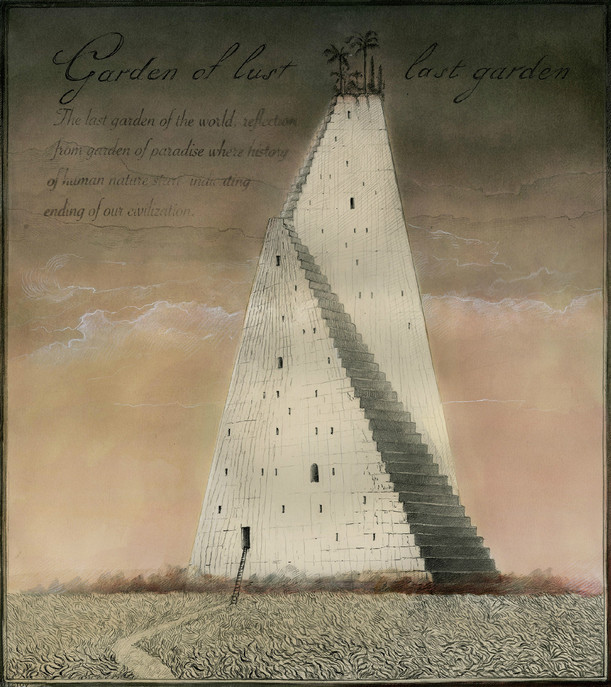 Garden of lust last garden
The last garden of the world, reflection
from garden of paradise where history
of human nature start indicating
ending of our civilization.